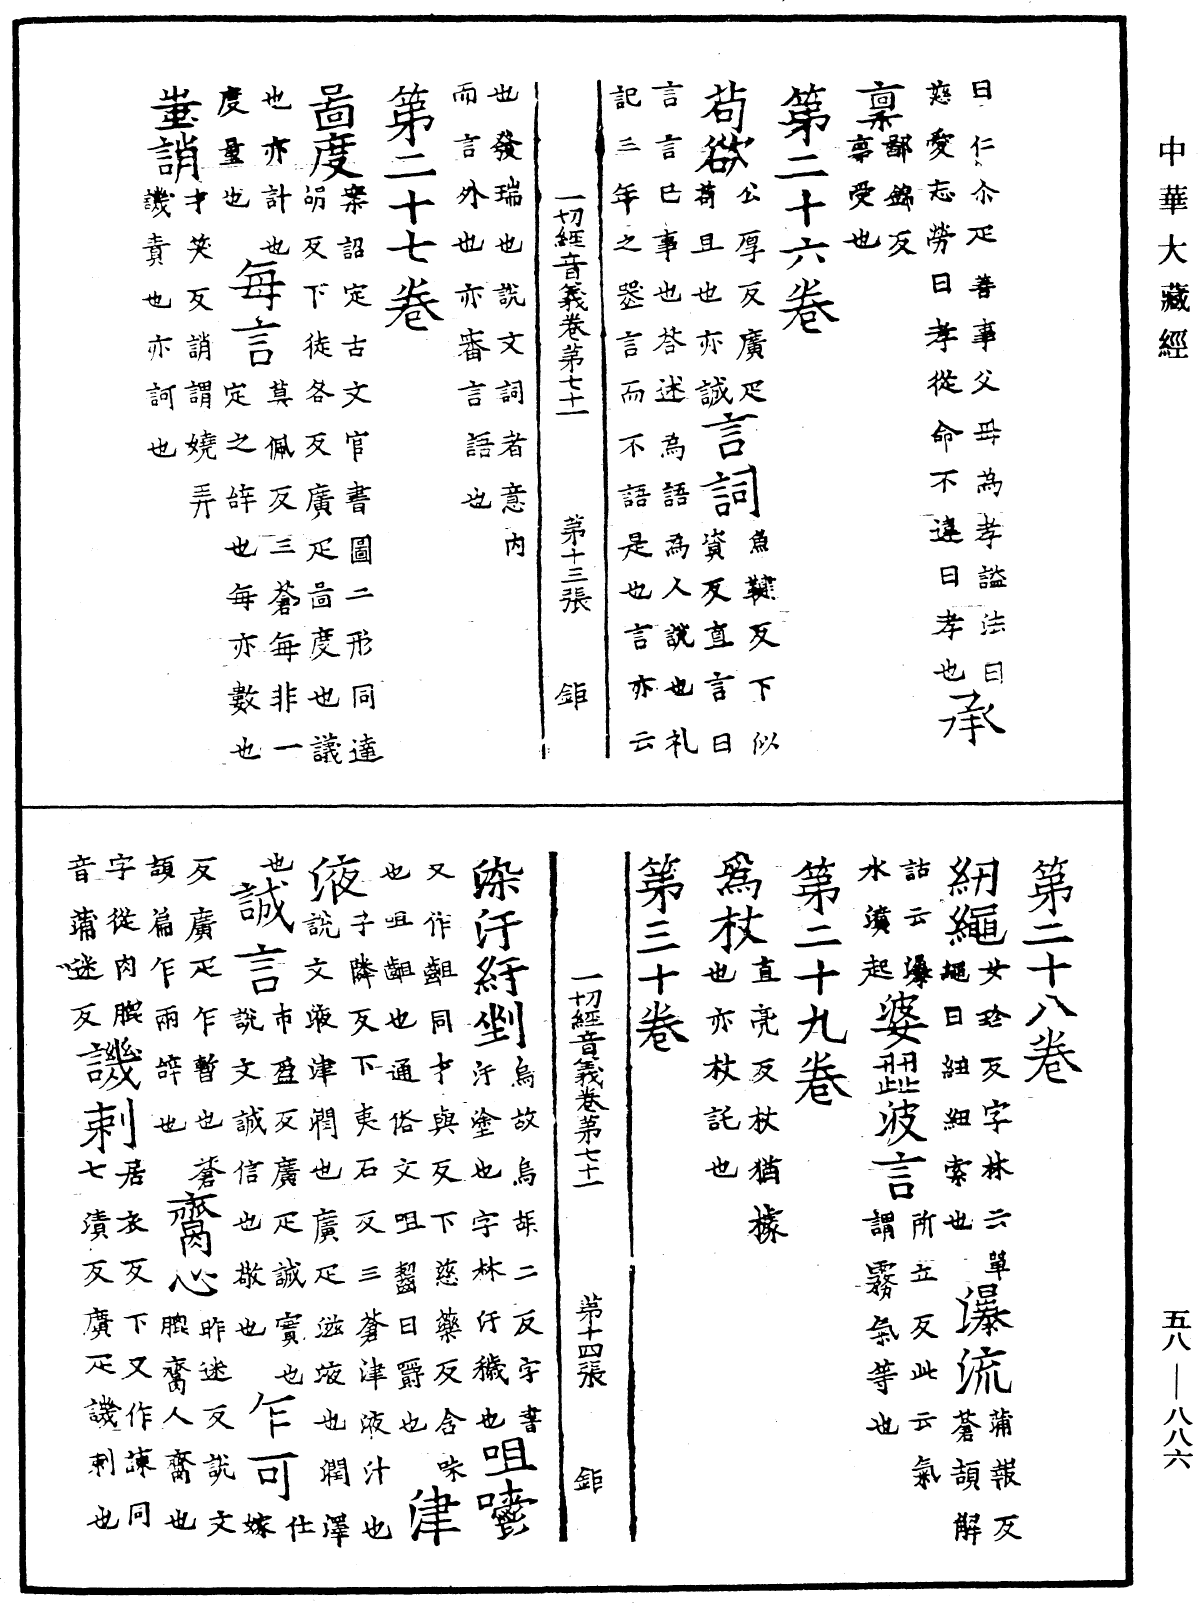 中華大藏經
曰仁尒疋善事父母為孝謚法曰
慈愛志勞曰孝從命不違曰孝也承
稟鄙錦反
稟受也
第二十六卷
苟欲公厚反廣疋
苟且也亦誠言詞魚鞬反下似
資反直言曰
言言己事也荅述為語為人説也礼
記三年之喪言而不語是也言亦云
一切經音義卷第七十一 第十三張 鉅
也發瑞也説文詞者意内
而言外也亦審言語也
第二十七卷
啚度案詔定古文官書圖二形同達
胡反下徒各反廣疋啚度也議
也亦計也每言莫佩反三蒼每非一
度量也 定之辝也每亦數也
蚩誚才笑反誚謂嬈弄
譏責也亦訶也
第二十八卷
紉繩女珍反字林云單
繩曰紉紉索也瀑流蒲報反
蒼頡解
詁云瀑
水濆起婆𠜂波言所立反此云氣
謂霧氣等也
第二十九卷
為杖直亮反杖猶據
也亦杖託也
第三十卷
一切經音義卷第七十一 第十四張 鉅
染汙紆剉烏故烏胡二反字書
汙塗也字林汙穢也咀嚼
又作齟同才與反下慈藥反含味
也咀齟也通俗文咀齧曰嚼也津
液子隣反下夷石反三蒼津液汁也
説文液津潤也廣疋滋液也潤澤
也誠言市盈反廣疋誠實也
説文誠信也敬也乍可仕
嫁
反廣疋乍暫也蒼
頡篇乍兩辝也臍心昨迷反説文
肶臍人臍也
字從肉肶
音蒲迷反譏刺居衣反下又作諫同
七漬反廣疋譏刺也
五八—八八六